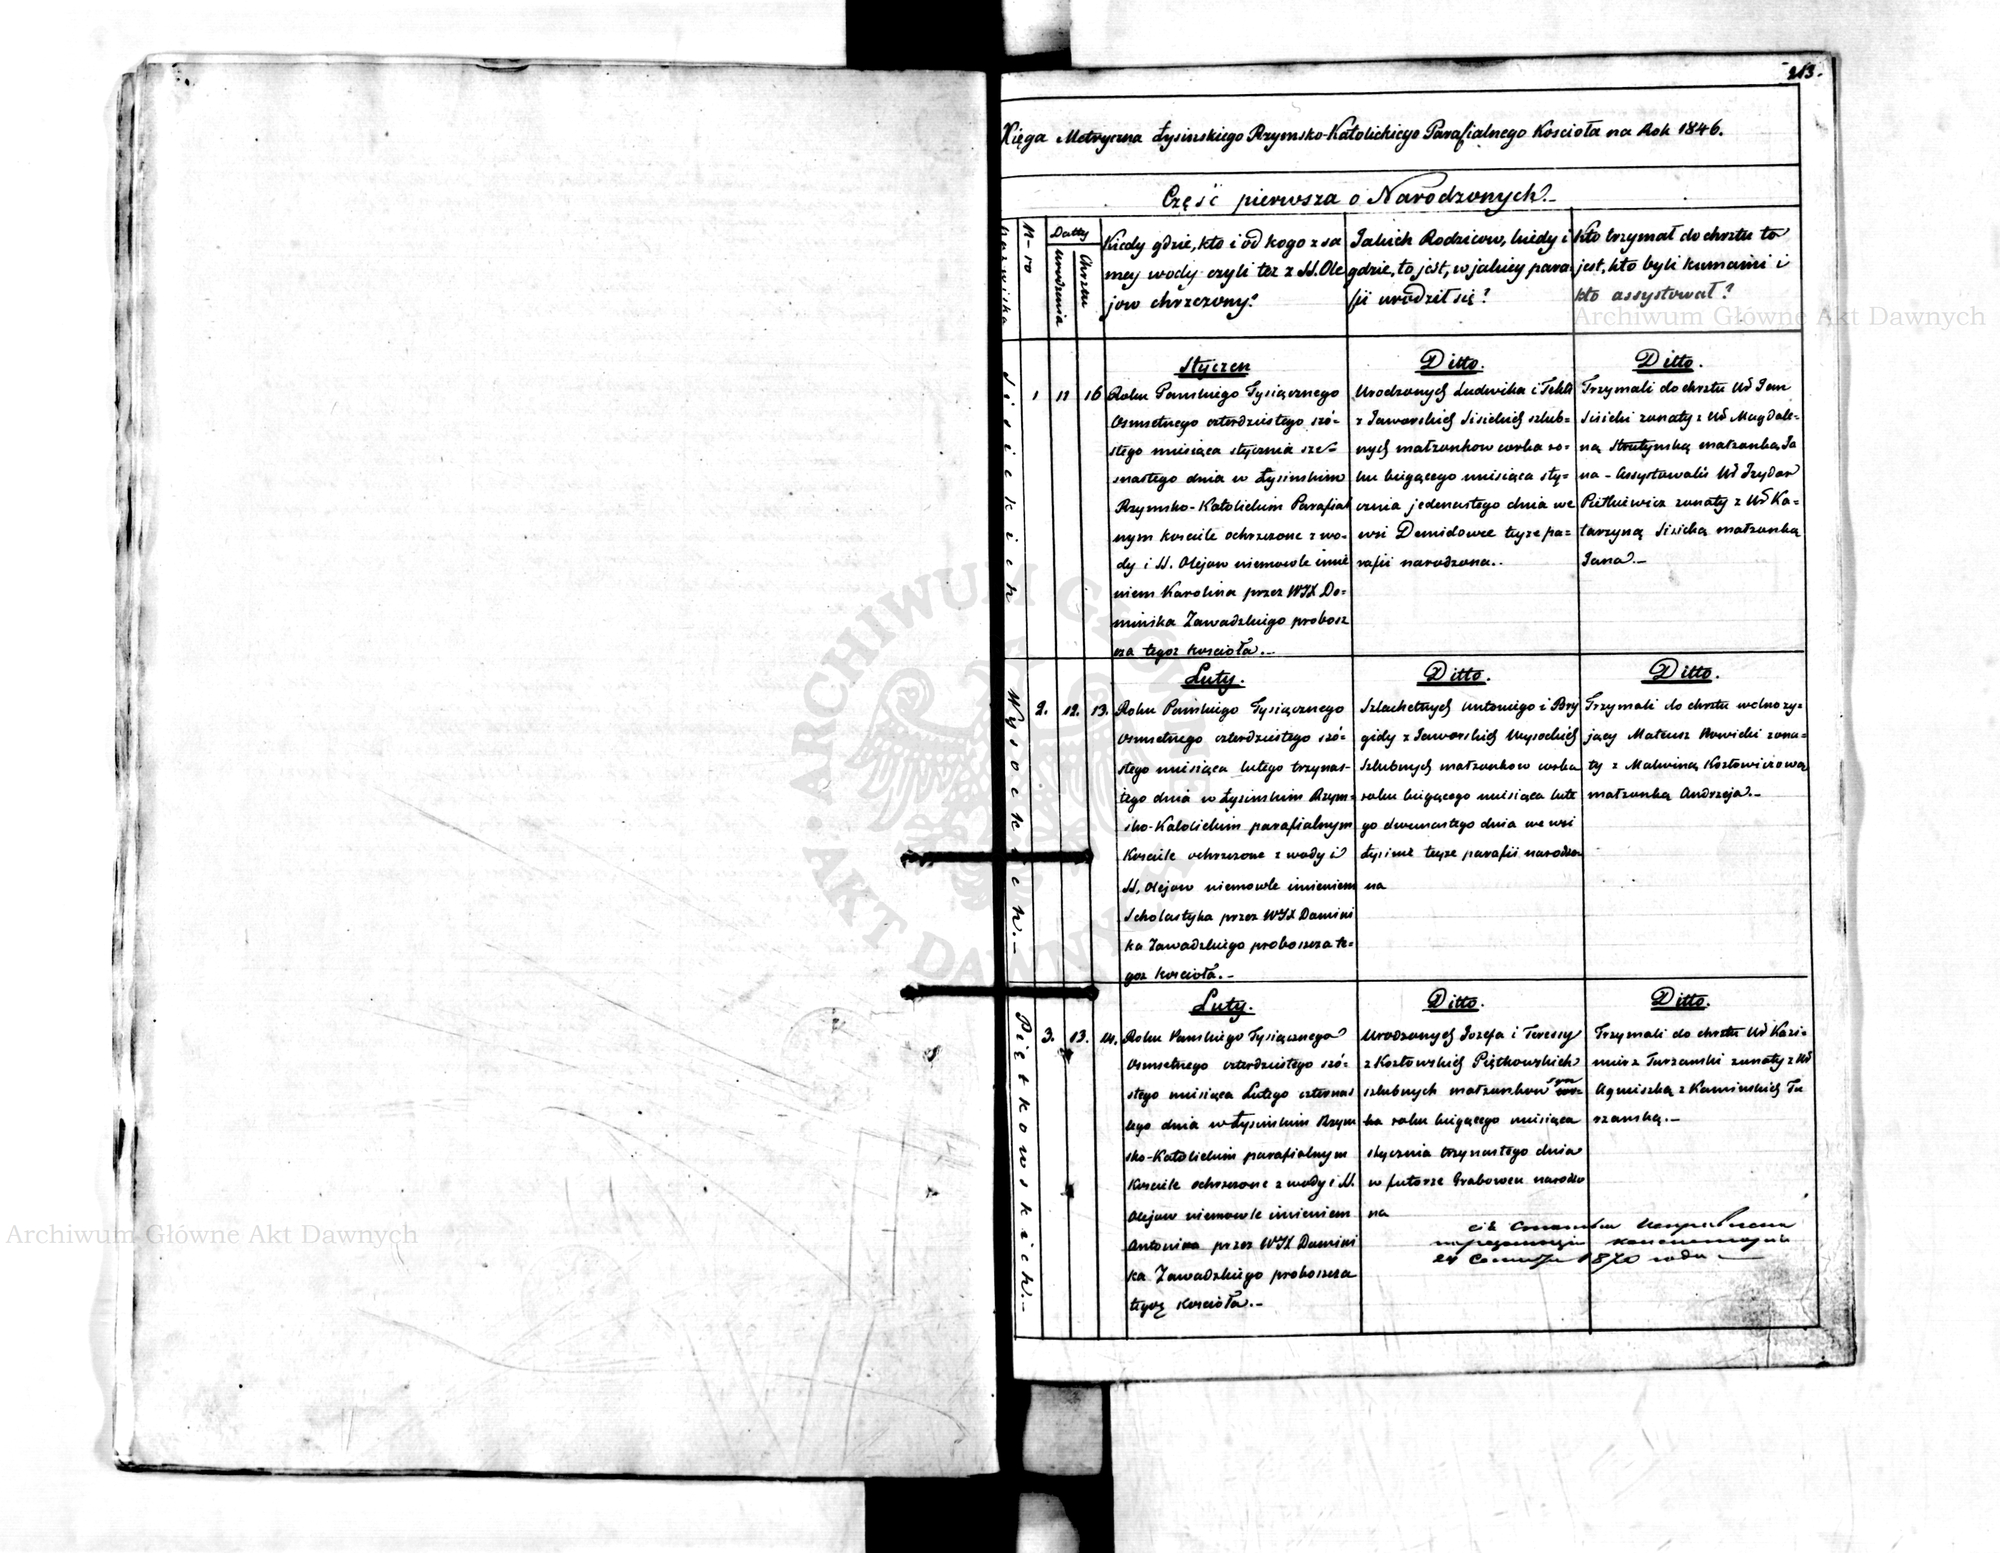 213.
Xięga Metryczna Łysinskiego Rzymsko-Katolickiego Parafialnego Koscioła na Rok 1846.
Część pierwsza o Narodzonych.
N-ro
Datty
urodzenia
Chrztu
Kiedy gdzie, kto i od kogo z sa
mey wody czyli tez z SS. Ole
jow chrzczony?
Jakich Rodzicow, kiedy i
gdzie, to jest, w jakiey para
fii urodził się?
Kto trzymał do chrztu to
jest, kto byli kumami i
kto assystował?
Sisickich
1 11 16
Styczen
Roku Panskiego Tysiącznego
Osmsetnego czterdziestego szó-
stego miesiąca stycznia sze-
snastego dnia w Łysinskim
Rzymsko-Katolickim Parafial
nym kosciele ochrzczone z wo-
dy i SS. Olejow niemowle imie
niem Karolina przez WJX Do-
minika Zawadzkiego probosz
cza tegoz koscioła.-
Ditto.
Urodzonych Ludwika i Tekli
z Jaworskich Sisickich szlub-
nych małzonkow corka ro-
ku biegącego miesiąca sty-
cznia jedenastego dnia we
wsi Demidowce teyze pa-
rafii narodzona..
Ditto.
Trzymali do chrztu Uŕ Jan
Sisicki zonaty z Uŕ Magdale-
ną Strutynską małzonką Ja
na - Assystowali Uŕ Izydor
Pietkiewicz zonaty z Uŕ Ka-
tarzyną Sisicką małzonką
Jana.-
Wysockich.-
2. 12. 13.
Luty.
Roku Panskiego Tysiącznego
Osmsetnego czterdziestego szó-
stego miesiąca lutego trzynas-
tego dnia w Łysinskim Rzym-
sko-Katolickim parafialnym
Kosciele ochrzczone z wody i
SS. Olejow niemowle imieniem
Scholastyka przez WJX Domini
ka Zawadzkiego proboszcza te-
goz koscioła.-
Ditto.
Szlachetnych Antoniego i Bry
gidy z Jaworskich Wysockich
szlubnych małzonkow corka
roku biegącego miesiąca lute
go dwunastego dnia we wsi
Łysinie teyze parafii narodzo
na
Ditto.
Trzymali do chrztu wolno zy-
jący Mateusz Nowicki zona-
ty z Malwiną Kozłowiczową
małzonką Andrzeja.-
Piętkowskich.-
3. 13. 14.
Luty.
Roku Panskiego Tysiącznego
Osmsetnego czterdziestego szó-
stego miesiąca Lutego czternas
tego dnia w Łysinskim Rzym
sko-Katolickim parafialnym
Kosciele ochrzczone z wody i SS.
Olejow niemowle imieniem
Antonina przez WJX Domini
ka Zawadzkiego proboszcza
tegoz koscioła.-
Ditto.
Urodzonych Jozefa i Teressy
z Kozłowskich Piętkowskich
szlubnych małzonkow cor
ka roku biegącego miesiąca
stycznia trzynastego dnia
w futorze Grabowcu narodzo
na
Ditto.
Trzymali do chrztu Uŕ Kazi-
mirz Turzanski zonaty z Uŕ
Agnieszką z Kaminskich Tu
rzanską.-
1870 года
Archiwum Główne Akt Dawnych
Archiwum Główne Akt Dawnych
ARCHIWUM GŁÓWNE AKT DAWNYCH